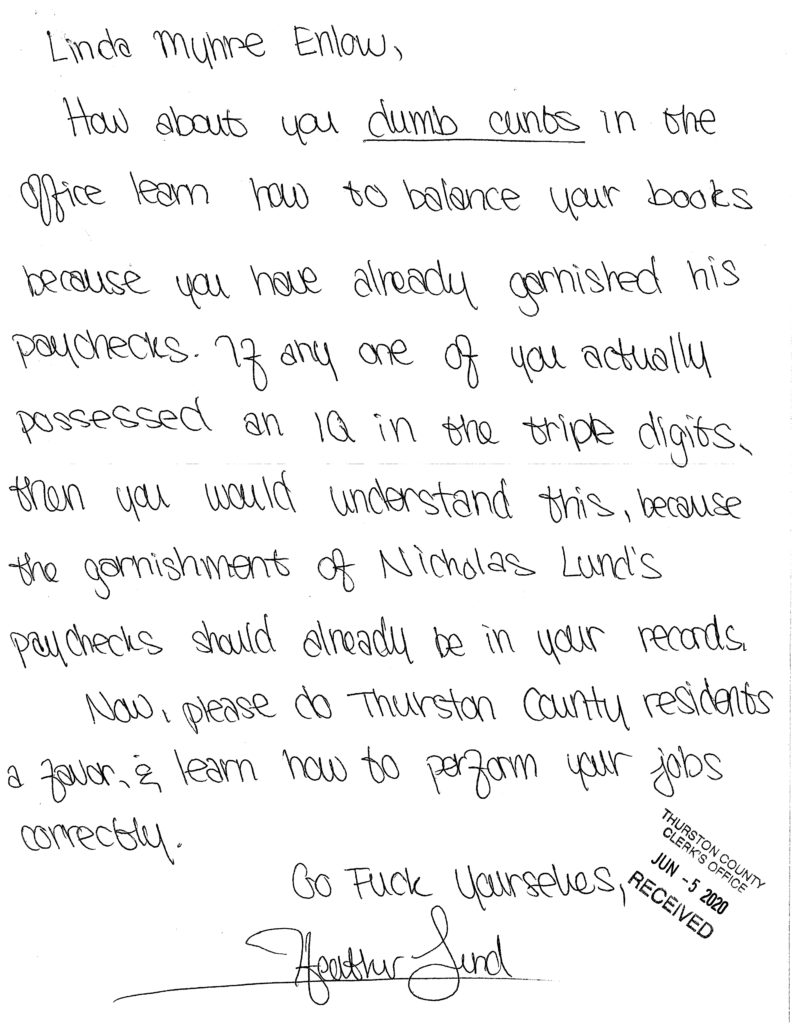 Linda Myhre Enlow,
How about you dumb cunts in the
office learn how to balance your books
because you have already garnished his
paychecks. If any one of you actually
possessed an IQ in the triple digits,
then you would understand this, because
the garnishment of Nicholas Lund's
paychecks should already be in your records.
Now, please do Thurston County residents
a favor, & learn how to perform your jobs
correctly.
Go Fuck Yourselves,
Heather Lund
THURSTON COUNTY
CLERK'S OFFICE
JUN -5 2020
RECEIVED